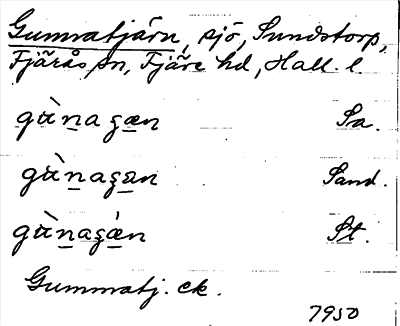 Gunnatjärn, sjö, Sundstorp,
Fjärås sn, Fjäre hd, Hall. l.
gɯ̀nagæn Sa.
gɯ̀nagæn Sand.
gɯ̀nagæ̀n St.
Gummatj. ek.
7950